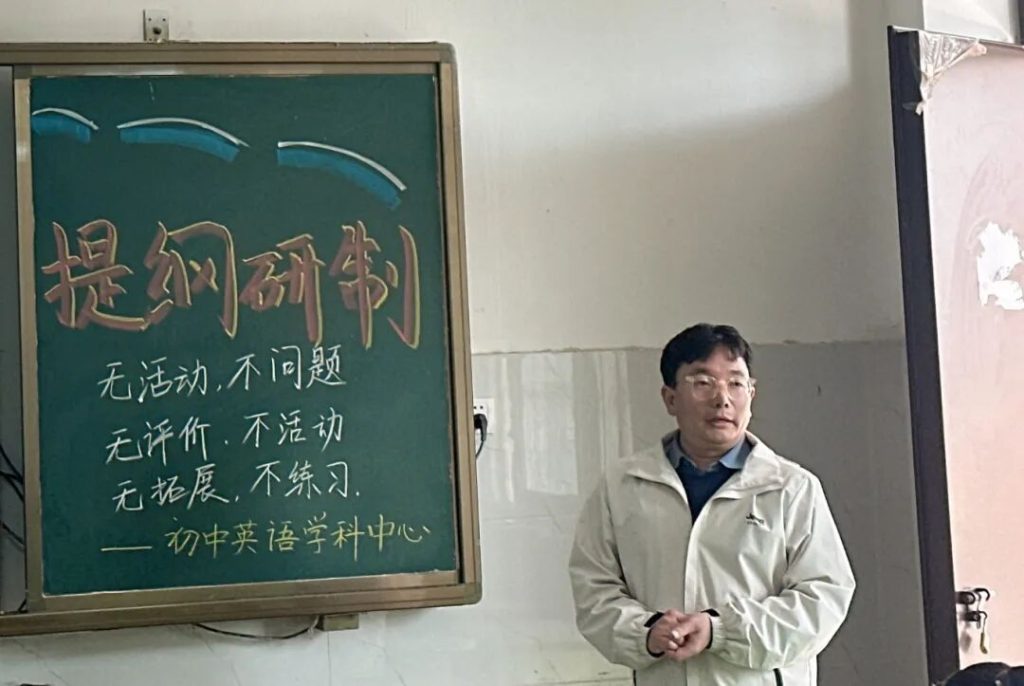 提纲研制
无活动，不问题
无评价．不活动
无拓展，不练习．
—— 初中英语学科中心